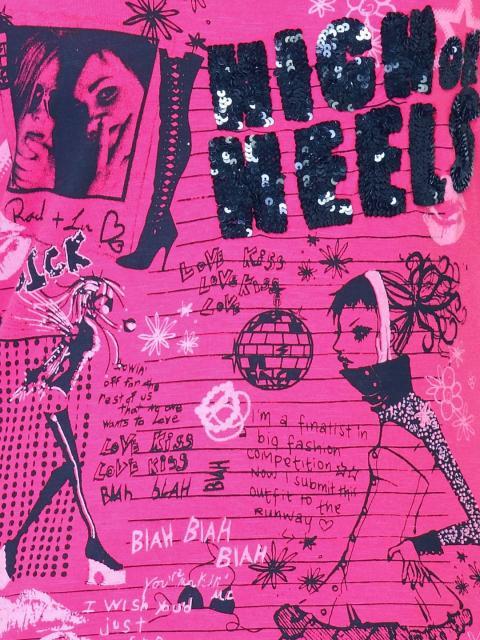 HIGH on
HEELS
Rad + Lu
SICK
Love Kiss
Love Kiss
Love
off for the
rest of us
that no one
wants to love
Love Kiss
Love Kiss
Blah blah
Blah
I'm a finalist in
big fashion
competition
Now I submit this
outfit to the
runway
Blah Blah
Blah
I wish you'd
just